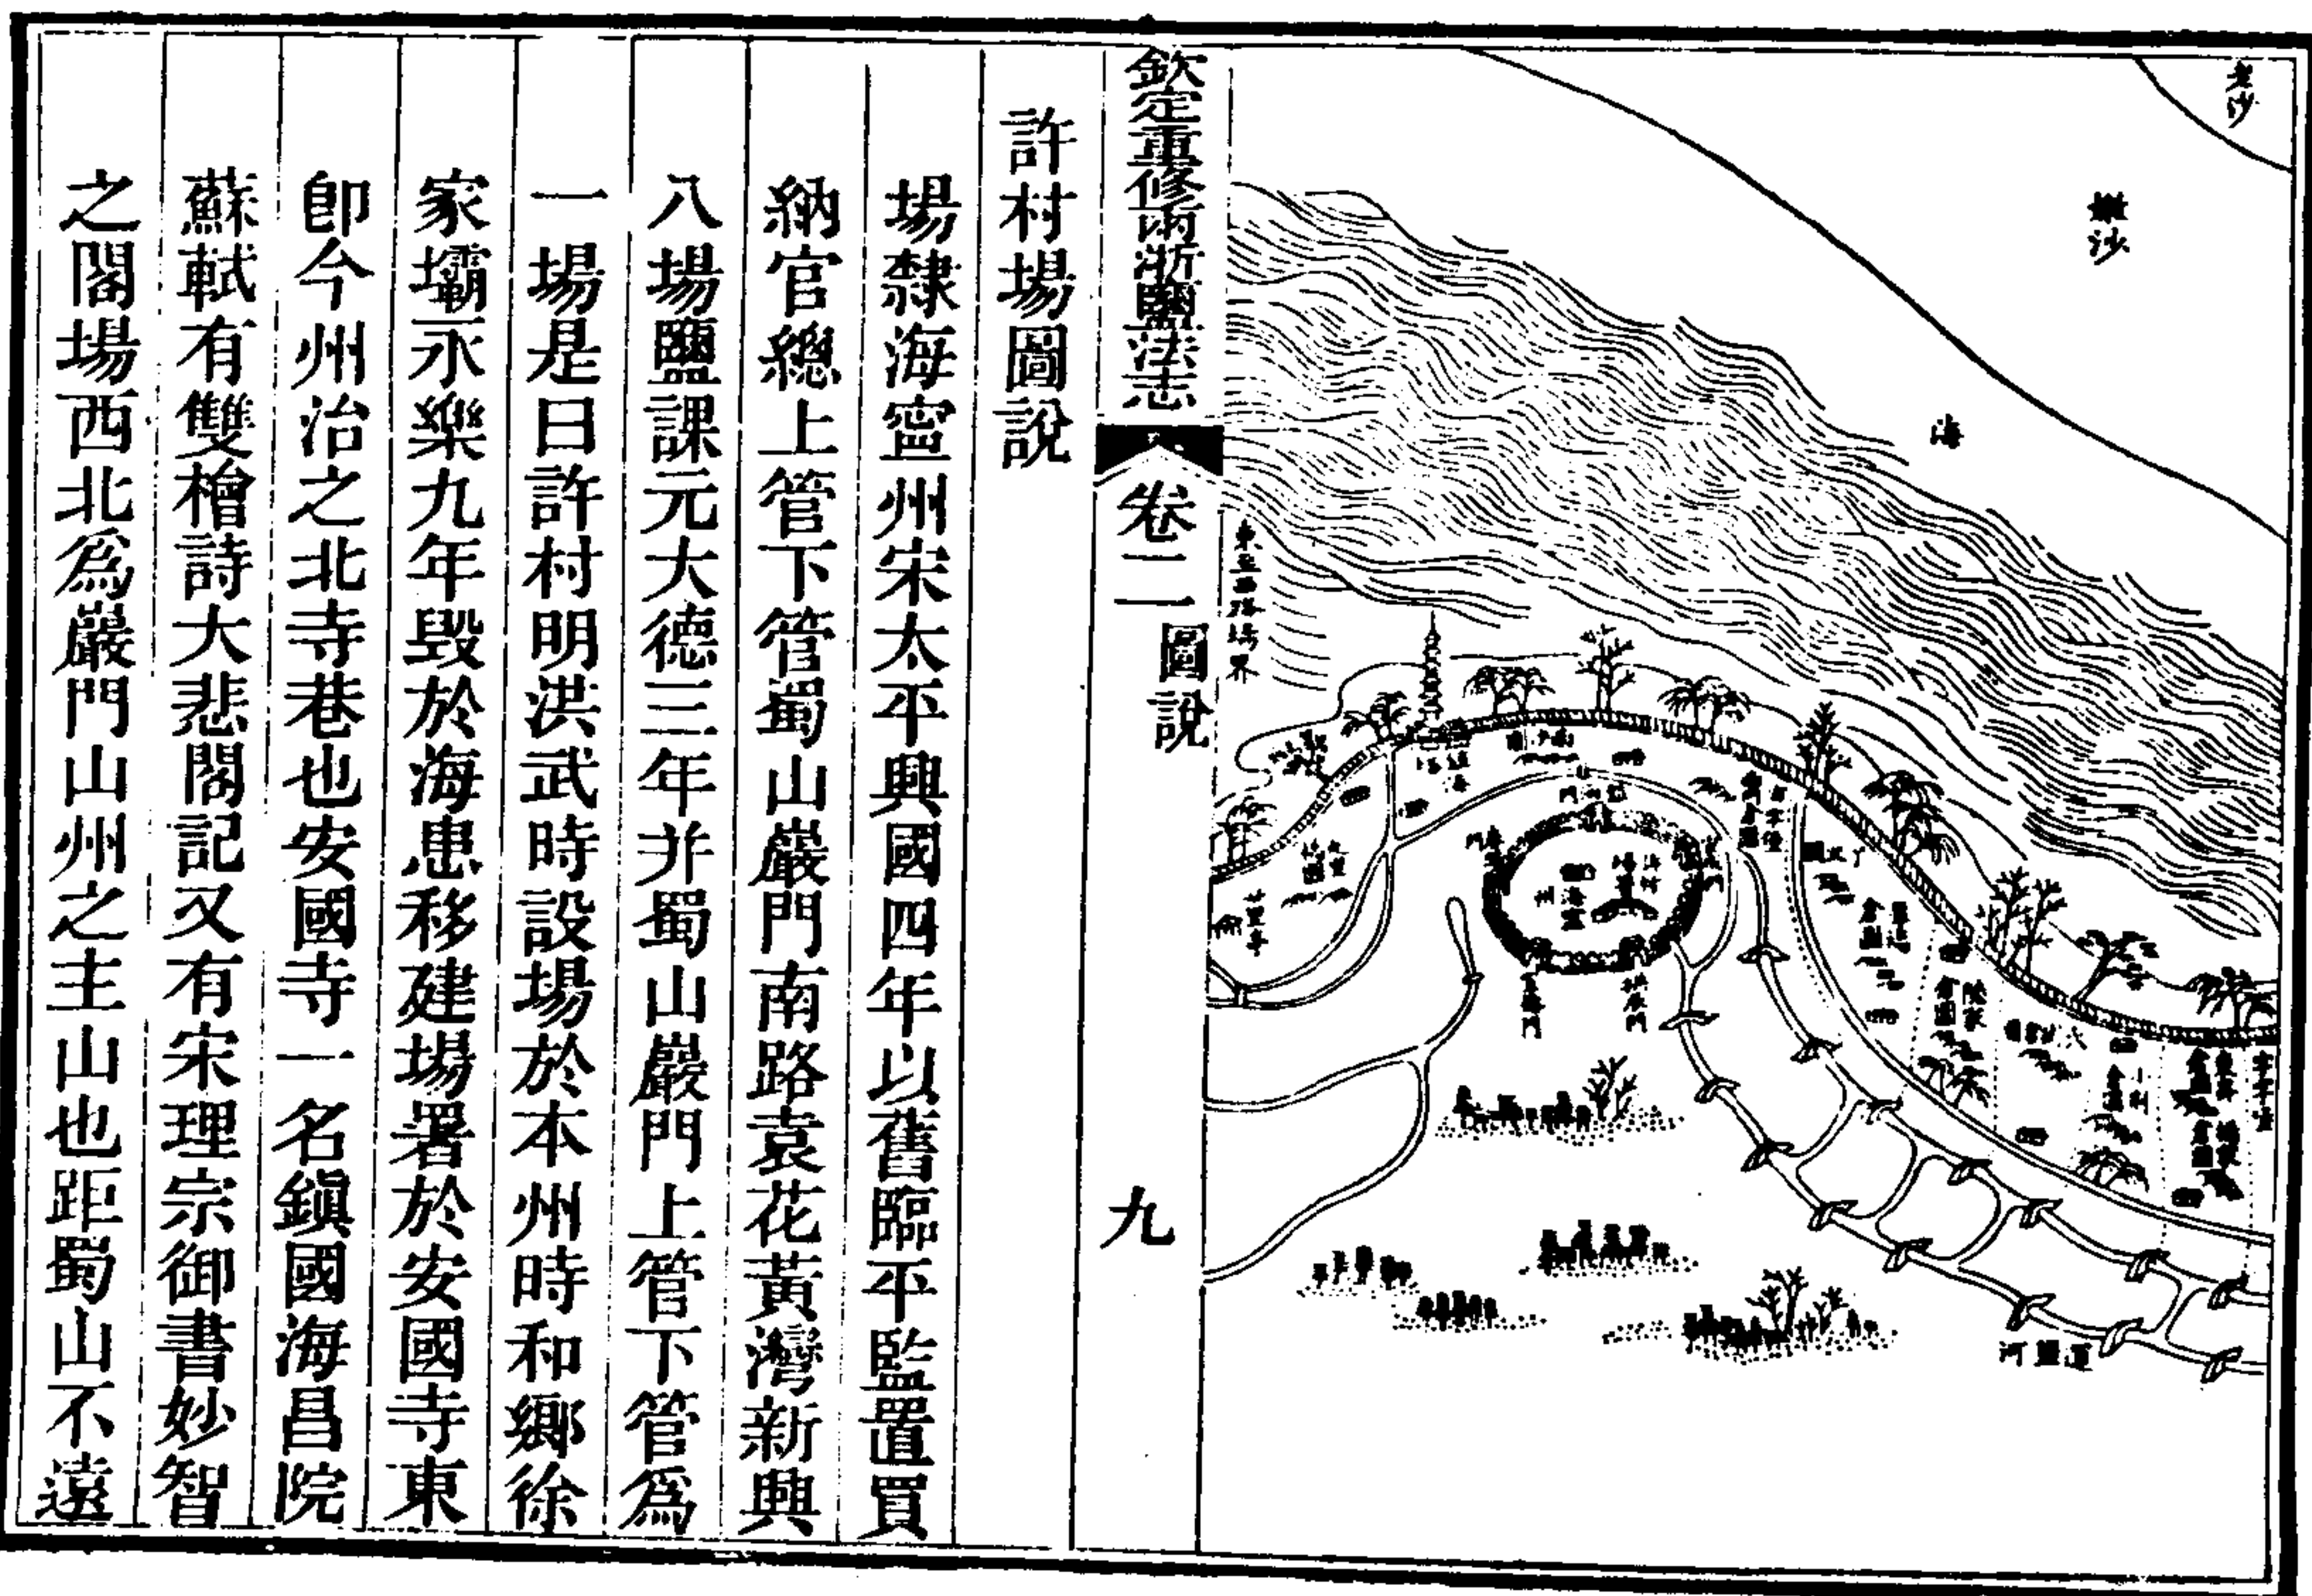 老沙
嫩沙
海
東至西路場界
廿里亭
海寧
州
拱辰門
運鹽河
欽定重修兩浙鹽法志
卷二
圖說
九
許村場圖說
場隸海寧州宋太平興國四年以舊臨平監置買
納官總上管下管蜀山巖門南路袁花黃灣新興
八場鹽課元大德三年并蜀山巖門上管下管為
一場是曰許村明洪武時設場於本州時和鄉徐
家壩永樂九年毀於海患移建場署於安國寺東
卽今州治之北寺巷也安國寺一名鎭國海昌院
蘇軾有雙檜詩大悲閣記又有宋理宗御書妙智
之閣場西北爲巖門山州之主山也距蜀山不遠